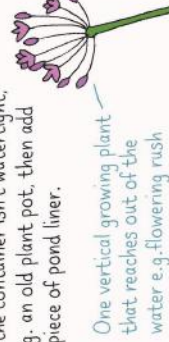 the container isn't watertight,
g. an old plant pot, then add
piece of pond liner.
One vertical growing plant
that reaches out of the
water e.g. flowering rush